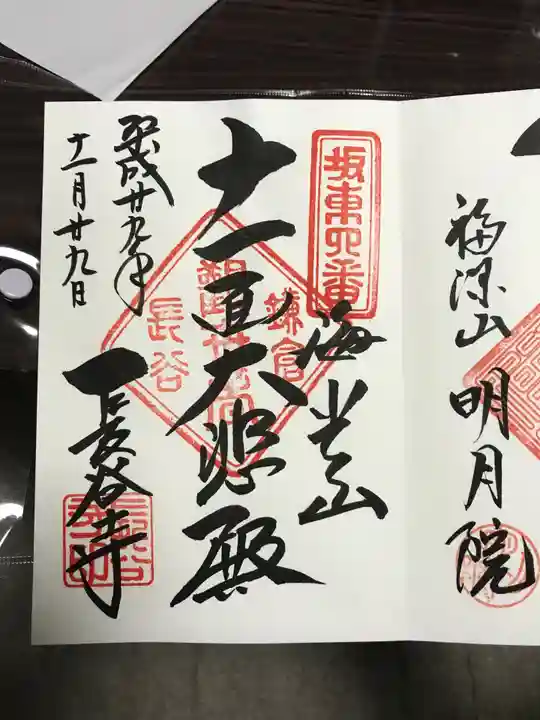 福源山 明月院
坂東四番
海光山
十一面大悲殿
鎌倉
観世音
長谷
長谷寺
平成廿九年
十一月廿九日